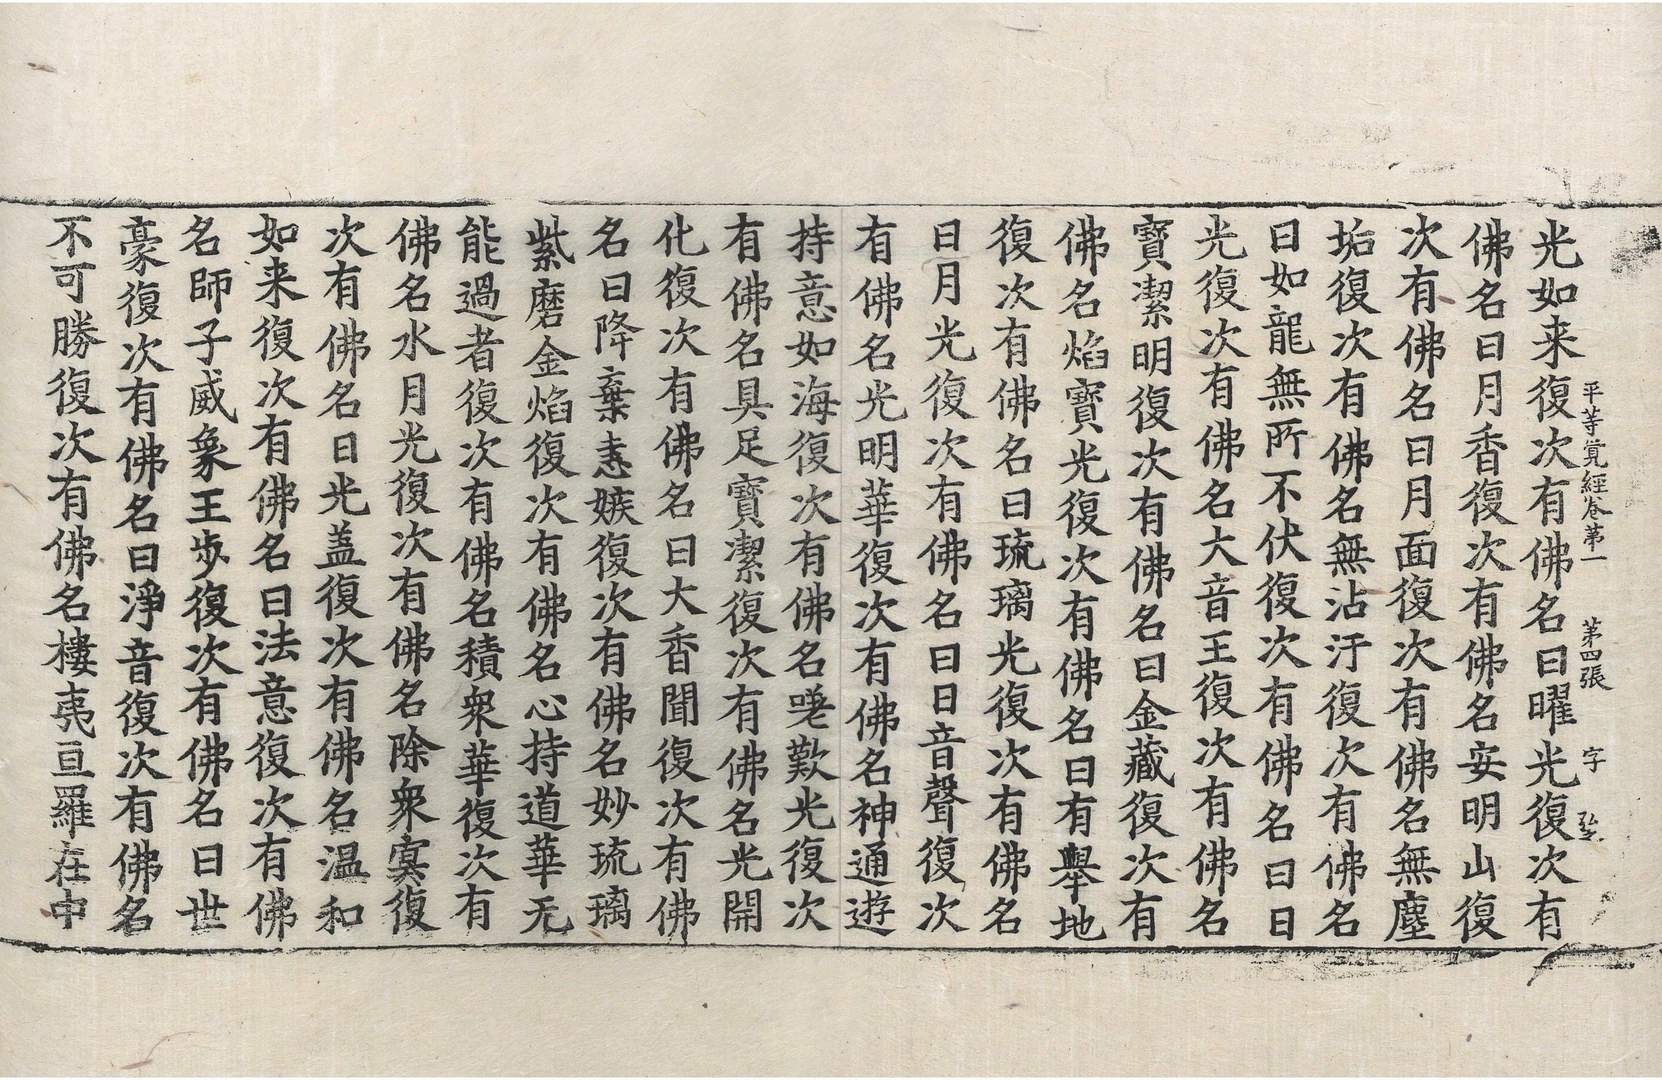 平等覺經卷第一　第四張　字
光如来復次有佛名曰曜光復次有
佛名曰月香復次有佛名安明山復
次有佛名曰月面復次有佛名無塵
垢復次有佛名無沾汙復次有佛名
曰如龍無所不伏復次有佛名曰日
光復次有佛名大音王復次有佛名
寶潔明復次有佛名曰金藏復次有
佛名焰寶光復次有佛名曰有舉地
復次有佛名曰琉璃光復次有佛名
日月光復次有佛名曰日音聲復次
有佛名光明華復次有佛名神通遊
持意如海復次有佛名嗟歎光復次
有佛名具足寶潔復次有佛名光開
化復次有佛名曰大香聞復次有佛
名曰降棄恚嫉復次有佛名妙琉璃
紫磨金焰復次有佛名心持道華无
能過者復次有佛名積衆華復次有
佛名水月光復次有佛名除衆㝠復
次有佛名日光盖復次有佛名温和
如来復次有佛名曰法意復次有佛
名師子威象王步復次有佛名曰世
豪復次有佛名曰淨音復次有佛名
不可勝復次有佛名樓夷亘羅在中